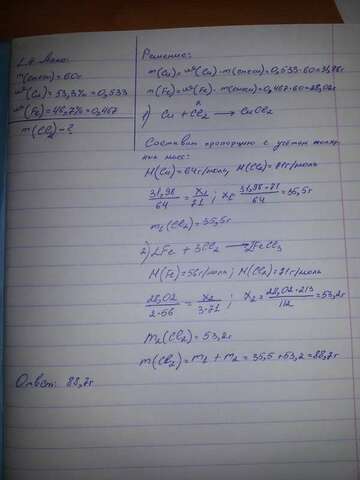 Дано:
m(смеси) = 60г
ω(Cu) = 53,3% = 0,533
ω(Fe) = 46,7% = 0,467
m(Cl2) - ?
Решение:
m(Cu) = ω(Cu) · m(смеси) = 0,533·60 = 31,98г
m(Fe) = ω(Fe) · m(смеси) = 0,467·60 = 28,02г
1) Cu + Cl2 → CuCl2
Составим пропорцию с учётом моляр-
ных масс:
M(Cu) = 64г/моль, M(Cl2) = 71г/моль
31,98/64 = x1/71 ; x1 = 31,98·71/64 = 35,5г
m1(Cl2) = 35,5г
2) 2Fe + 3Cl2 → 2FeCl3
M(Fe) = 56г/моль; M(Cl2) = 71г/моль
28,02/2·56 = x2/3·71 ; x2 = 28,02·213/112 = 53,2г
m2(Cl2) = 53,2г
m(Cl2) = m1 + m2 = 35,5 + 53,2 = 88,7г
Ответ: 88,7г